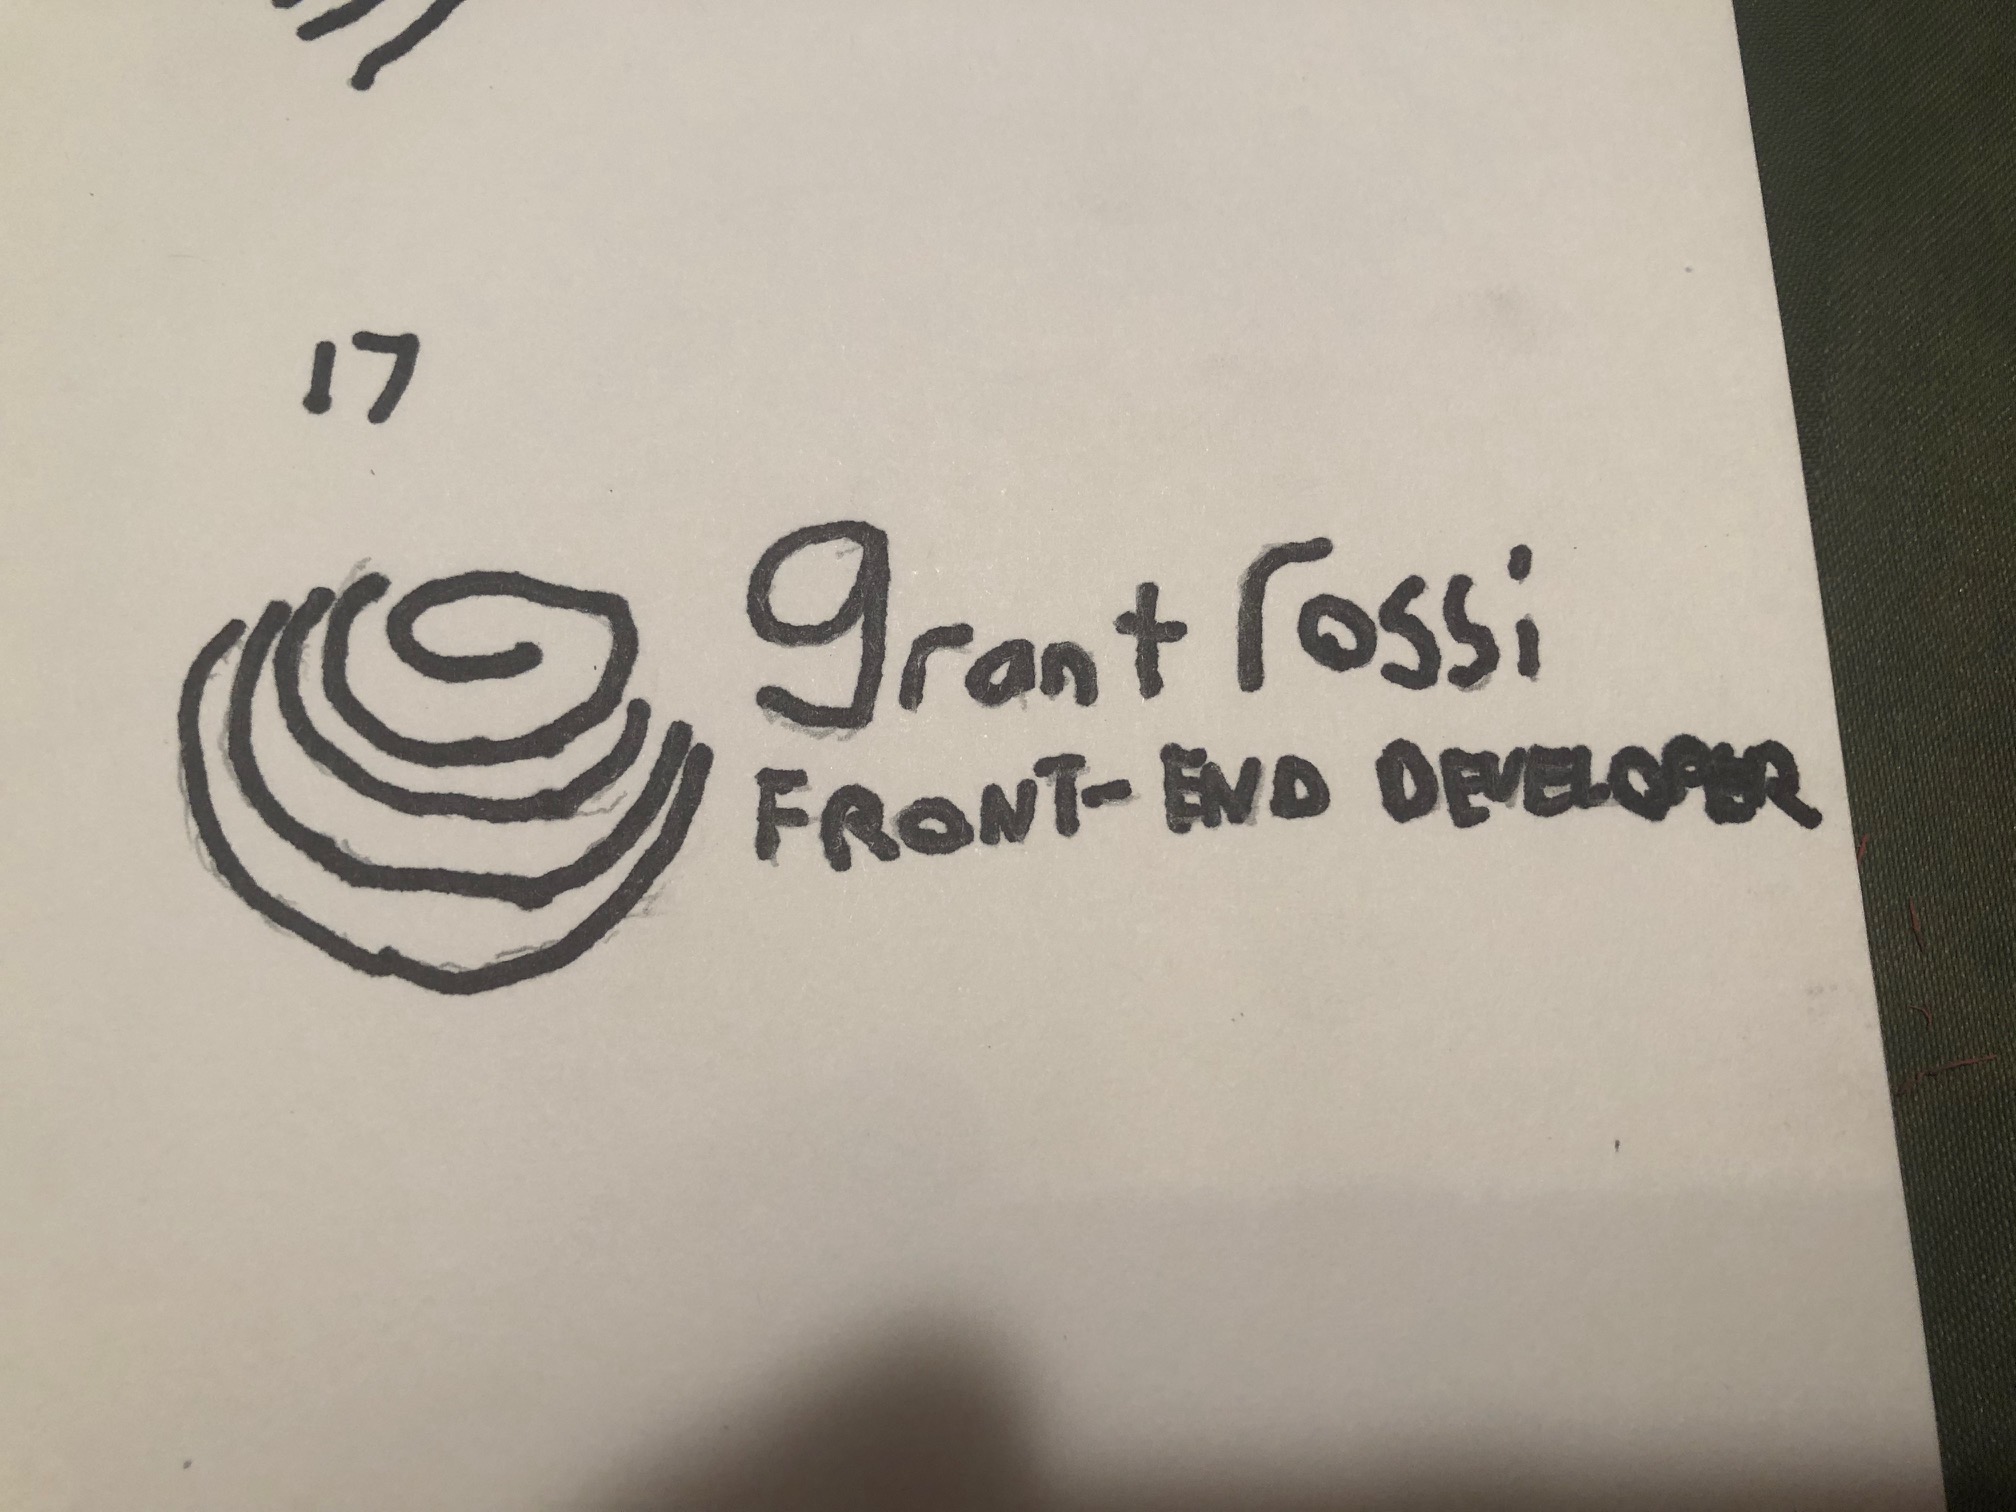 17
grant rossi
FRONT-END DEVELOPER